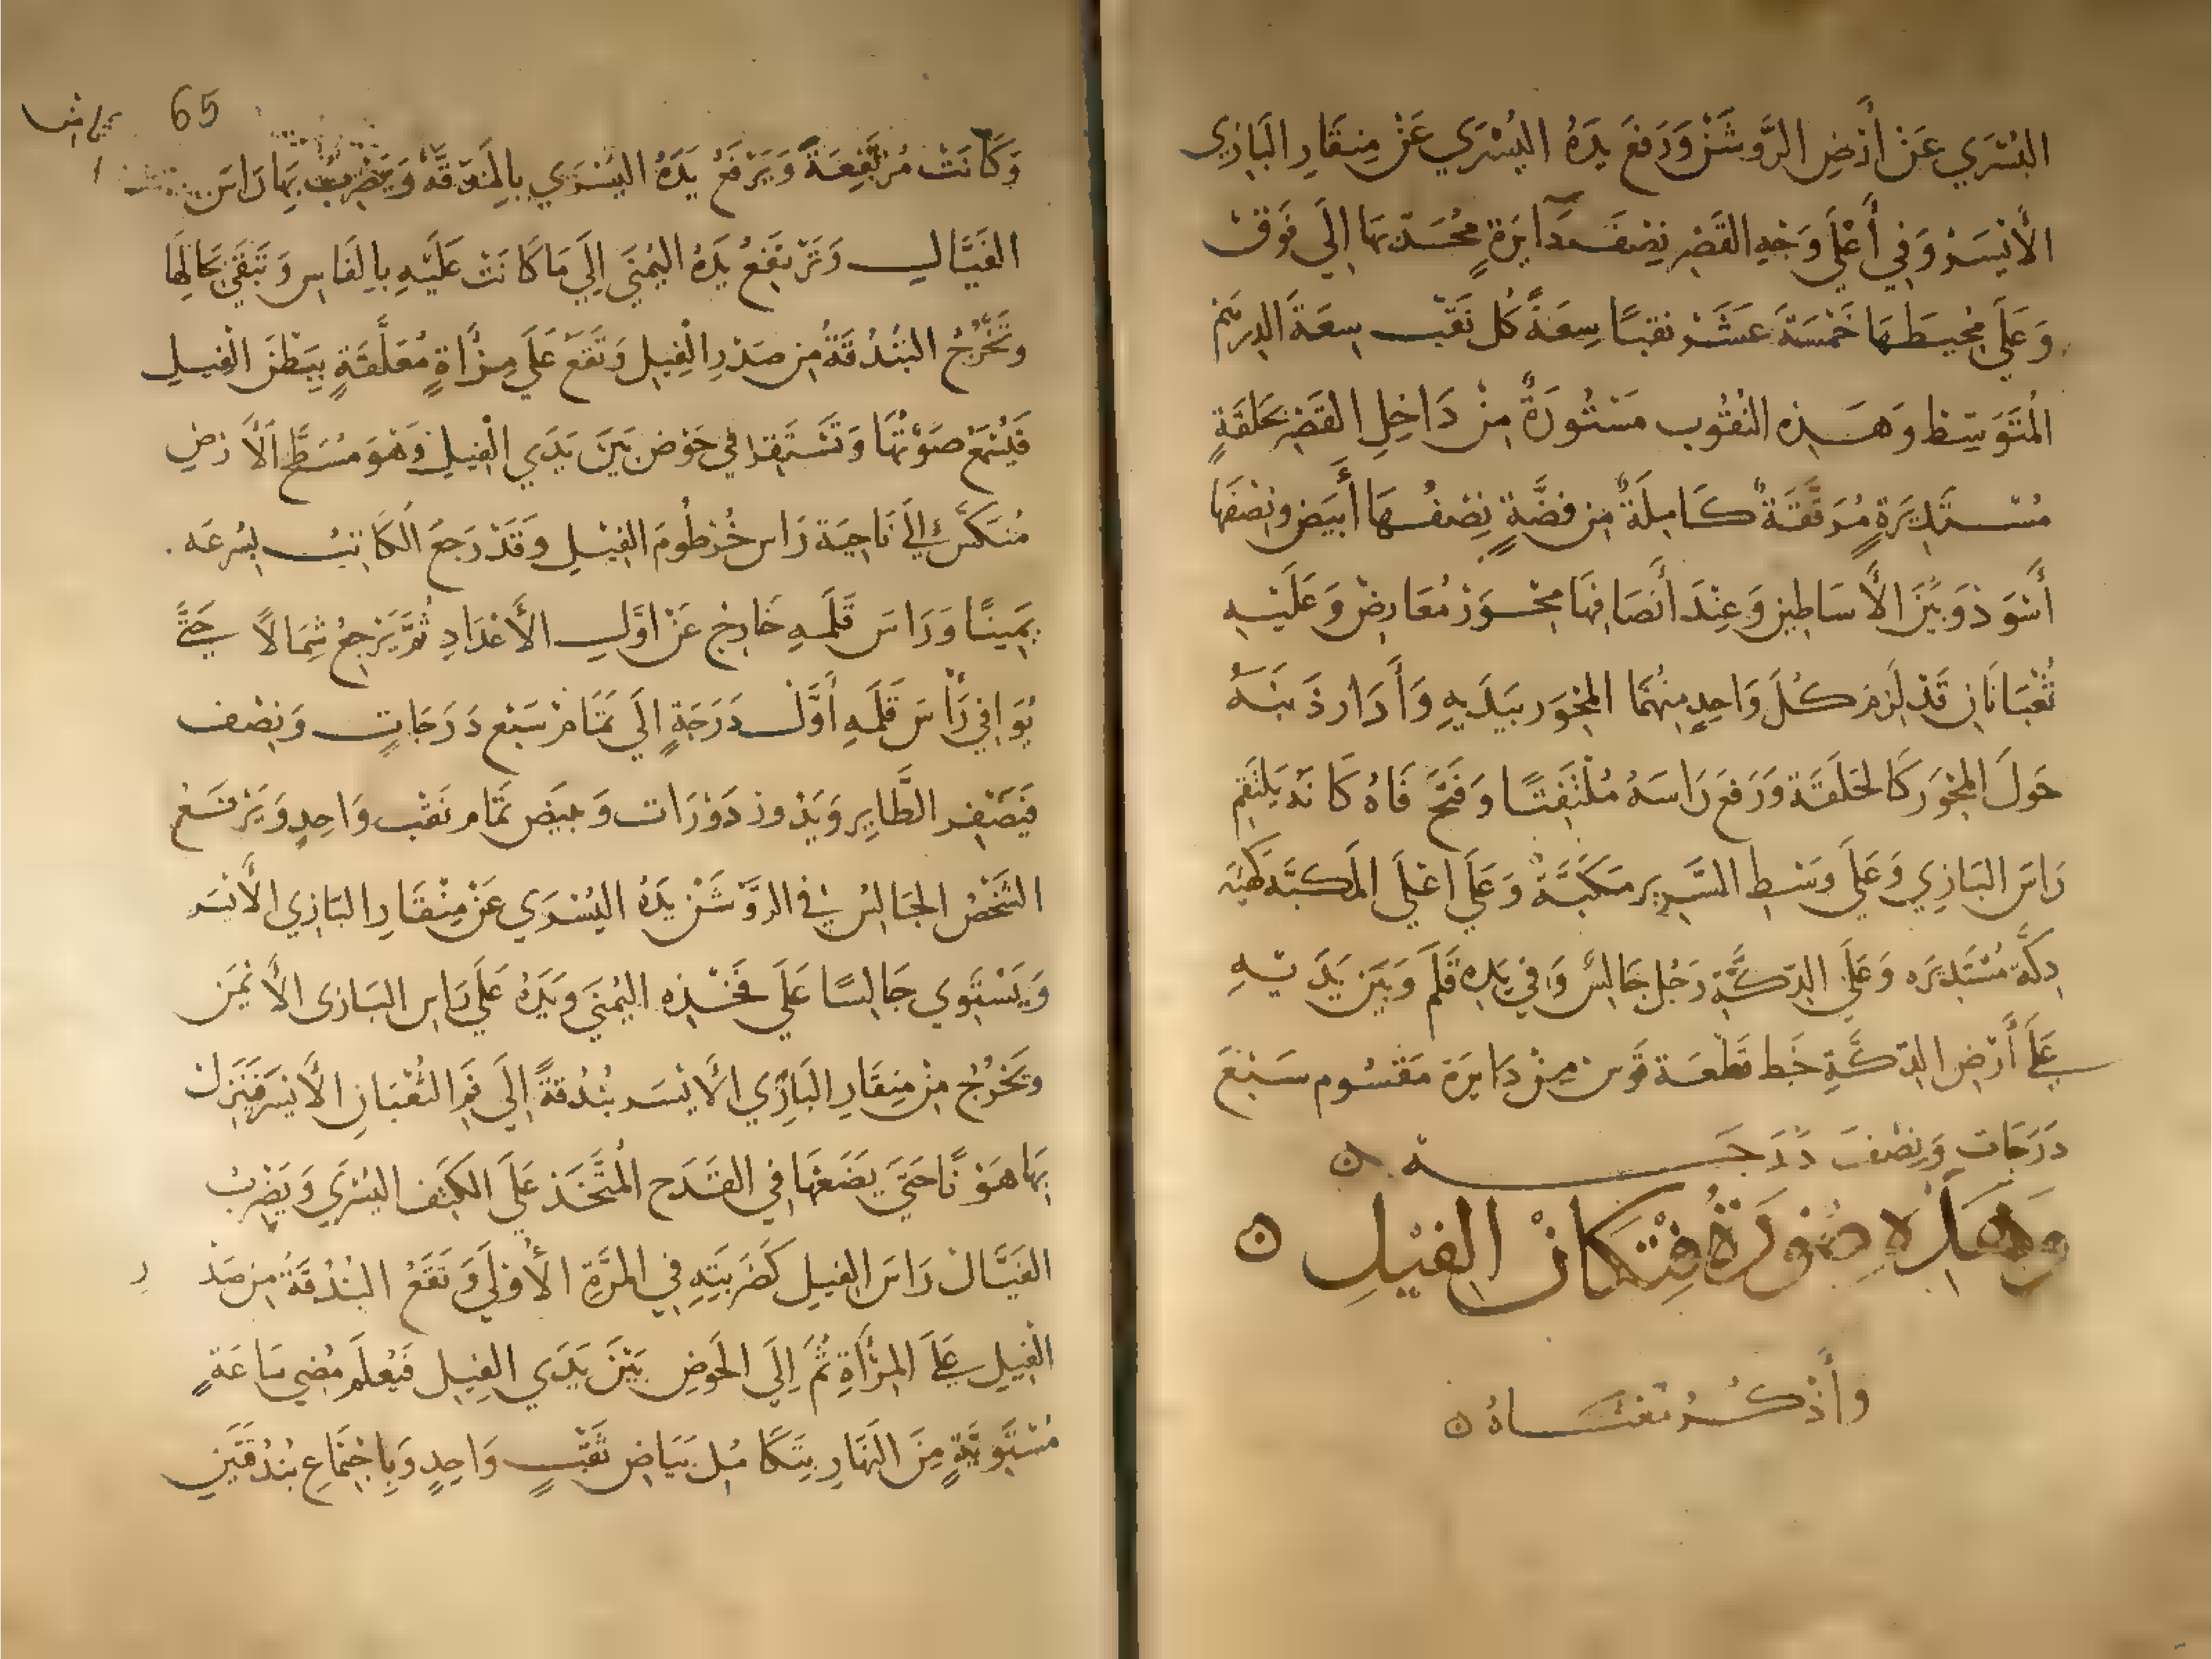 اليُسْرَي عَنْ أرْضِ الرَّوشَنْ وَرَفعَ يدَهُ اليُسْرَي عَنْ مِنقَارِ البَازِي
الأيْسَرْ وَفي أعْلَي وَجْهِ القَصْرِ نِصْفُ دَايرَةٍ مُحَدّبهَا إلَي فَوقْ
وَعَلَي مُحِيطهَا خَمْسَةَ عَشَرْ نقبًا سِعَةُ كُل نَقْبْ سِعَةُ الدِرهَمْ
المُتَوَسِّط وَهَذِه النُقُوب مَسْتُورَةٌ مِنْ دَاخِلِ القَصْرْ بحَلقَةٍ
مُسْتَدِيرَةٍ مُرَقّقَةٌ كَامِلَةٌ مِن فضَّةٍ نِصْفُهَا أبيَض ونِصْفهَا
أسْوَدْ وَبَيْنَ الأسَاطِينِ وَعِنْدَ أنصَافِهَا مِحْوَرْ مُعَارِضْ وَعَليْهِ
ثُعْبَانَانِ قَدْ لَزمَ كُلَ وَاحِدٍ مِنْهُمَا المِحْوَر بيَدَيهِ وَأدَارَ ذَنبَهُ
حَولَ المِحْوَر كَالحَلَقَة وَرَفَعَ رَاسَهُ مُلْتَفتًا وَفَتَحَ فَاهُ كَانهُ يَلتَقِمُ
رَاسَ البَازِي وَعَلَي وَسْطِ السَّرِيرِ مَكَبَّةٌ وَعَلَي اعْلَي المَكبَّة كَهيْة
دِكَّة مُسْتَدِيرَه وَعَلَي الدِكَّةِ رَجُل جَالِسٌ وَفي يَدِهِ قَلَمٌ وَبَين يَدَيْهِ
عَلَى أرْضِ الدِكَّةِ خَط قطْعَة قَوس مِنْ دَايرَة مَقْسُوم سَبْعَ
دَرَجَات وَنِصْفَ دَرَجَة ٥
وَهَذِهِ صُورَةُ فنْكَانْ الفِيْلِ ٥
وأذْكُرُ مَعْنَاهُ ٥
65
وَكَانَتْ مُرْتَفِعَةً وَيَرْفَعُ يَدَهُ اليُسْرَي بالمِدَقَّة وَيَضْرِبُ بِهَا رَاسَ
الفَيَّالِ وَتَرْتَفِعُ يَدَهُ اليُمْنَي إلَي مَا كَانَتْ عَلَيْهِ بِالفَاسِ وَتَبْقَي بحَالِهَا
وتَخْرُجُ البُنْدُقَةُ مِن صَدْرِ الْفِيل وَتَقعُ عَلَي مِرْاةٍ مُعَلَّقَةٍ بِبَطْنِ الفِيلِ
فَيُسْمَع صَوْتُهَا وَتَسْتَقِرُ فِي حَوْض بَيْنَ يَدَي الْفِيلِ وَهْوَ مُسَطَّح الأرْضِ
مُنَكَّسٌ إلَي نَاحِيَة رَاس خُرْطُومَ الفِيْلِ وَقَدْ رَجَعَ الكَاتِبُ بسُرعَه
يَمِينًا وَرَاسَ قَلَمِهِ خَارِجْ عَنْ اوّلِ الأعْدَادِ ثُمَّ يَرْجعُ شِمَالًا حَتَّي
يُوَافي رَأسَ قَلَمِهِ أوَّلَ دَرَجَةٍ الَي تمَامْ سَبْع دَرَجَاتٍ وَنصْف
فَيَصْفِر الطَّايِر وَيَدُورْ دَوْرَات وَيبيَض تمَام نَقْب وَاحِدٍ وَيَرْفَعُ
الشَخْصُ الجَالسُ في الرَّوْشَنْ يَدَهُ اليُسْرَي عَنْ مِنْقَارِ البَازي الأيْسَر
وَيَسْتَوِي جَالِسًا عَلَي فَخْذِهِ اليُمْنَي وَيَدُهُ عَلَي رَاسِ البَازِى الأيْمَن
وتَخْرُجُ مِنْ مِنقَارِ البَازِي الأيْسَر بُنْدُقَةً إلَي فَمِ الثُعْبَانِ الأيْسَر فَيَنْزِلْ
بِهَا هَوْنًا حَتَّيَ يَضَعَهَا في القَدَح المُتَّخَذ عَلَى الكَتِف اليُسْرَي وَيَضْرِبُ
الفَيَّالْ رَاسَ الفِيلِ كَضَرْبَتِهِ فِي المَرَّةِ الأوْلَي وَتَقَعُ البُنْدُقَةُ مِن صَدْر
الْفِيلِ عَلَى المِرْآةِ ثُمَّ إِلَي الحَوضِ بَيْنَ يَدَي الفِيلِ فَيُعْلَم مُضِي سَاعَةٍ
مُسْتَوِيَّةٍ مِنَ النَهَارِ بِتَكَامُل بَيَاض نَقْبٍ وَاحِدٍ وَبِاجْتِمَاعِ بُنْدُقتَيْنِ